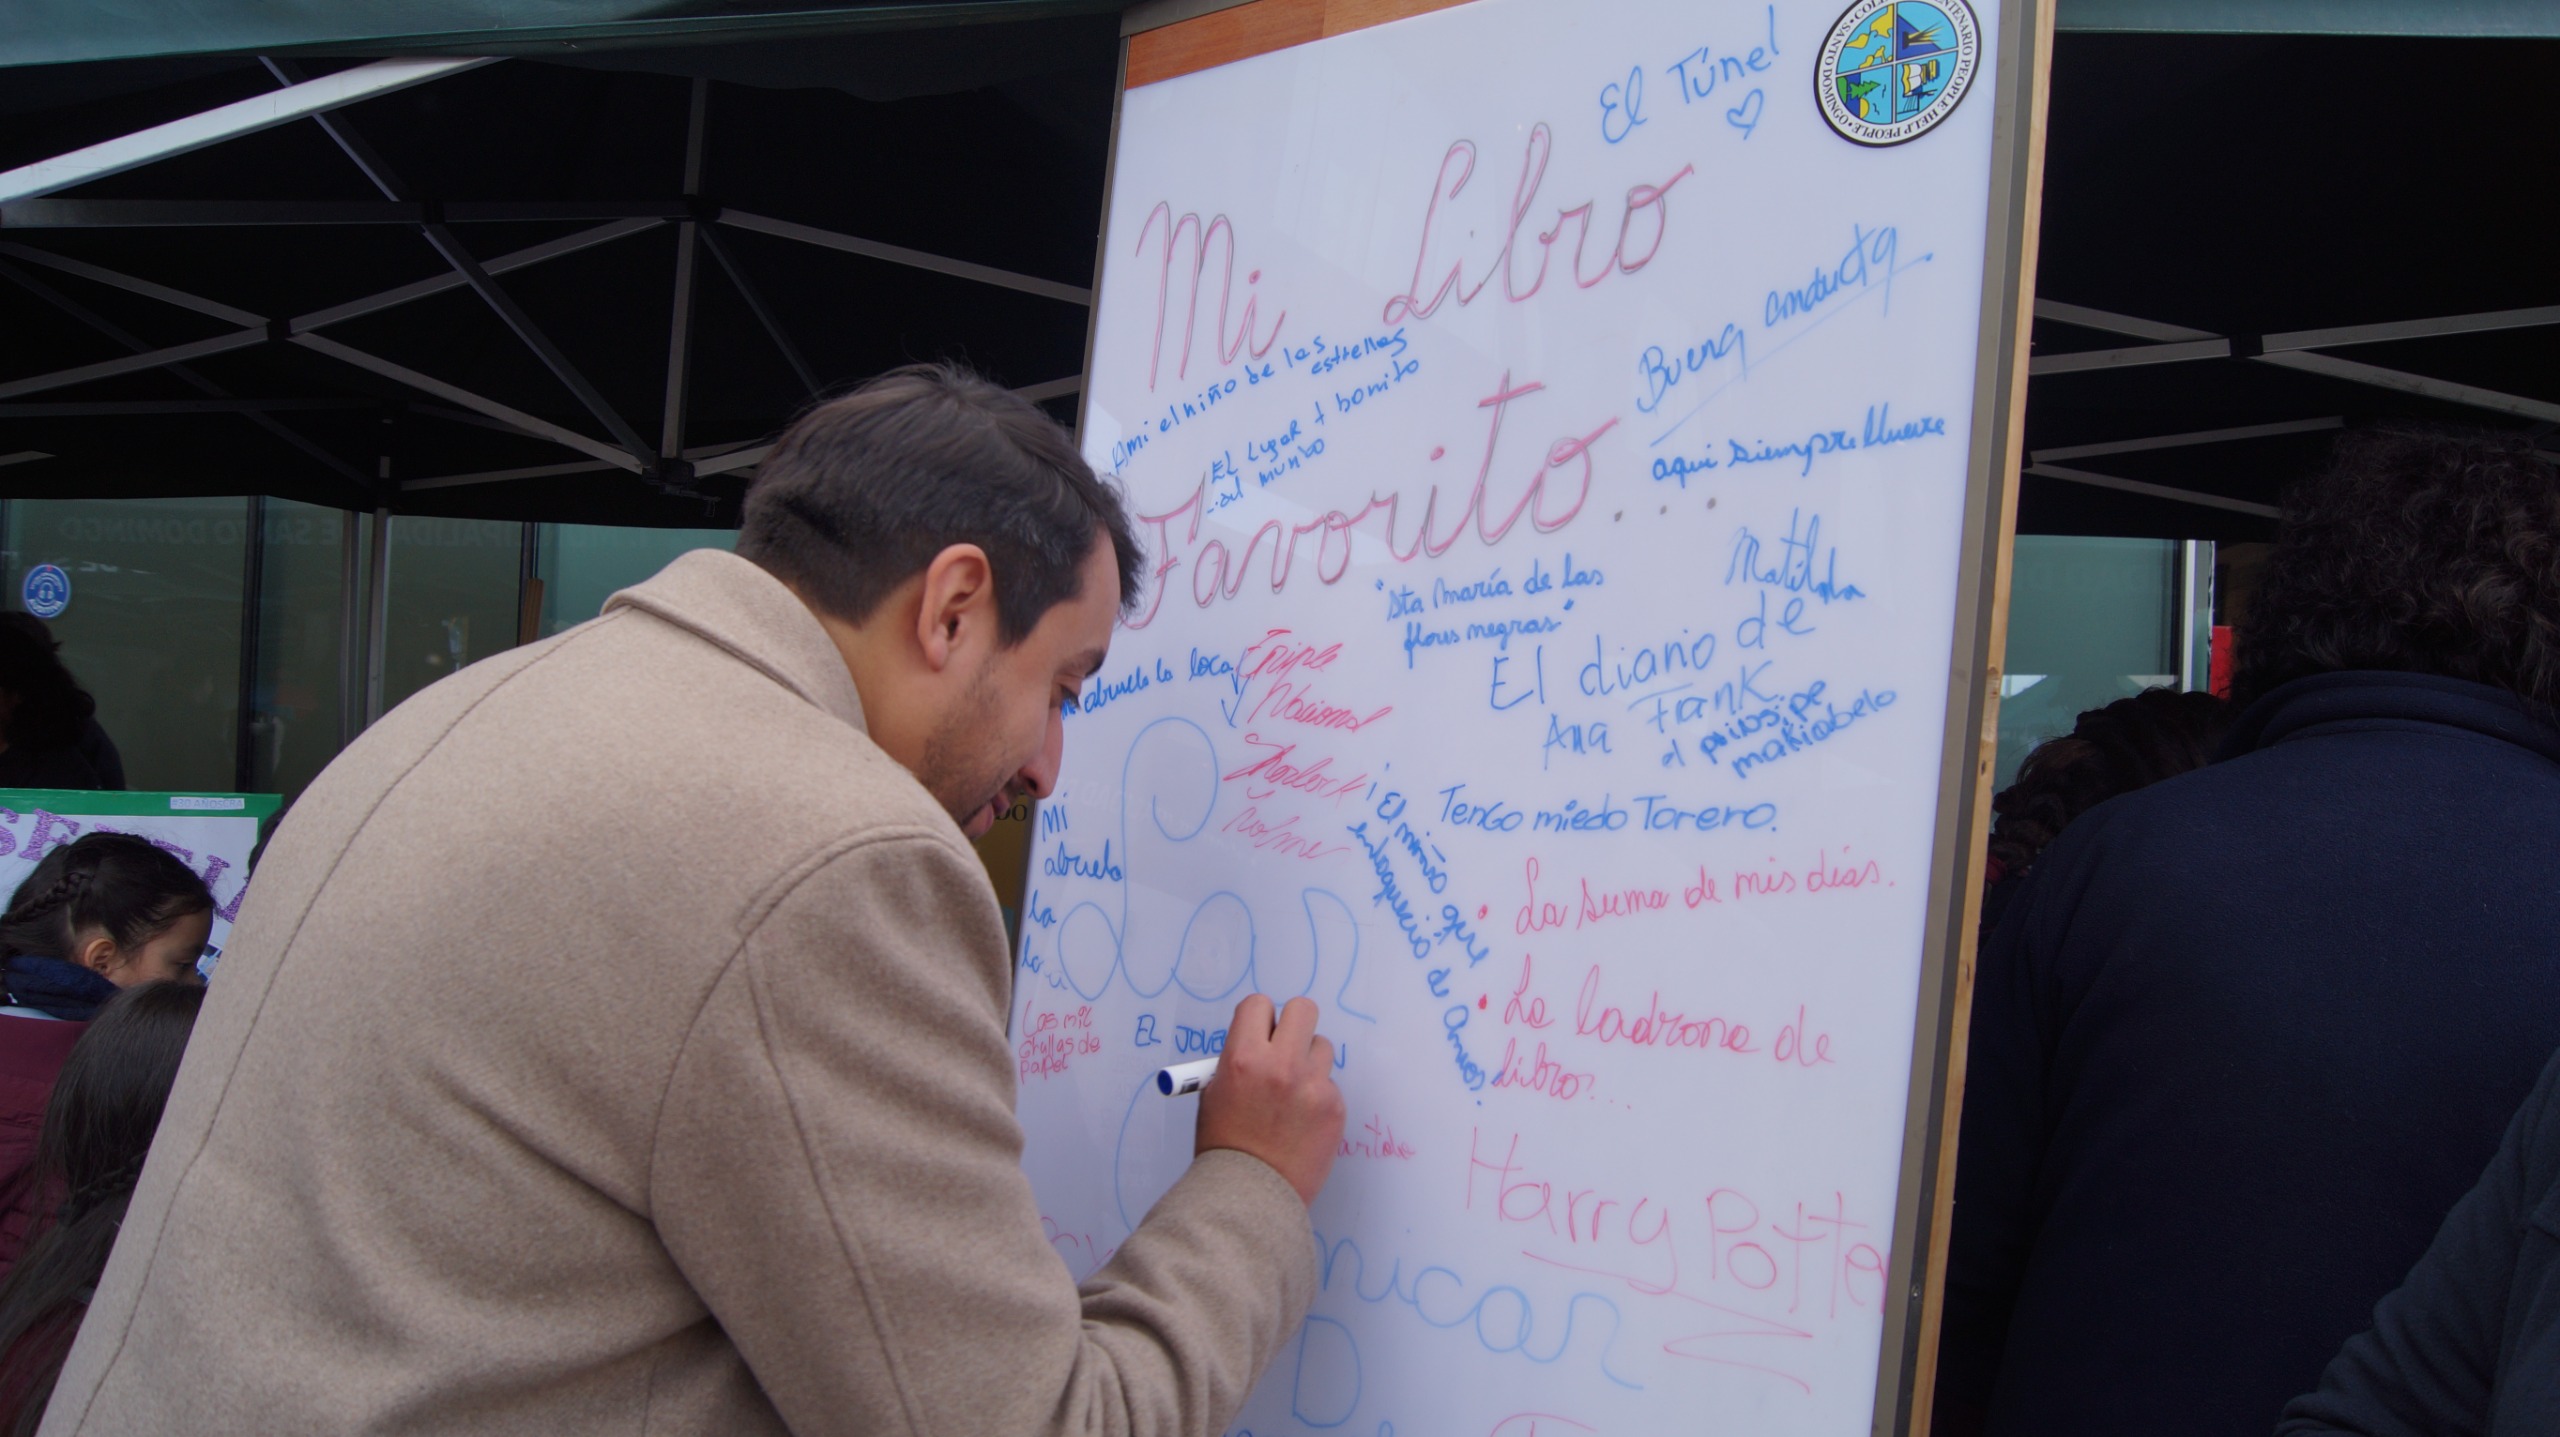 El Túnel
SANTO DOMINGO • COLEGIO CENTENARIO PEOPLE HELP PEOPLE •
Mi Libro
Favorito...
Ami el niño de las
estrellas
EL LUGAR + bonito
del mundo
Buena conducta.
aqui siempre llueve
Matilda
"Sta María de las
flores negras"
El diario de
Ana Frank
el prinsipe
makiabelo
mi abuela la loca
Tengo miedo Torero.
Mi
abuela
la
Sherlock
¡El niño que
enloqueció de amor.
• La suma de mis días.
• La ladrona de
Libro...
Los mil
Grullas de
papel
EL JOVE
Harry Potter
D
#30 AÑOSCBA